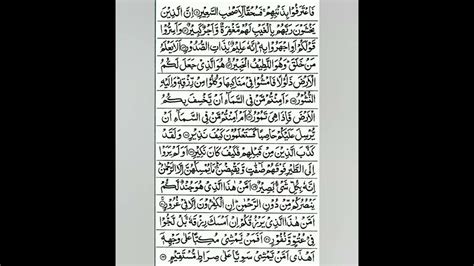 فَاعْتَرَفُوْا بِذَنْۢبِهِمْ ۚ فَسُحْقًا لِّاَصْحٰبِ السَّعِيْرِ ۝ اِنَّ الَّذِيْنَ
يَخْشَوْنَ رَبَّهُمْ بِالْغَيْبِ لَهُمْ مَّغْفِرَةٌ وَّاَجْرٌ كَبِيْرٌ ۝ وَاَسِرُّوْا
قَوْلَكُمْ اَوِ اجْهَرُوْا بِهٖ ؕ اِنَّهٗ عَلِيْمٌۢ بِذَاتِ الصُّدُوْرِ ۝ اَلَا يَعْلَمُ
مَنْ خَلَقَ ؕ وَهُوَ اللَّطِيْفُ الْخَبِيْرُ ۝ هُوَ الَّذِيْ جَعَلَ لَكُمُ
الْاَرْضَ ذَلُوْلًا فَامْشُوْا فِيْ مَنَاكِبِهَا وَكُلُوْا مِنْ رِّزْقِهٖ ؕ وَاِلَيْهِ
النُّشُوْرُ ۝ ءَاَمِنْتُمْ مَّنْ فِي السَّمَآءِ اَنْ يَّخْسِفَ بِكُمُ
الْاَرْضَ فَاِذَا هِيَ تَمُوْرُ ۝ اَمْ اَمِنْتُمْ مَّنْ فِي السَّمَآءِ اَنْ
يُّرْسِلَ عَلَيْكُمْ حَاصِبًا ؕ فَسَتَعْلَمُوْنَ كَيْفَ نَذِيْرِ ۝ وَلَقَدْ
كَذَّبَ الَّذِيْنَ مِنْ قَبْلِهِمْ فَكَيْفَ كَانَ نَكِيْرِ ۝ اَوَلَمْ يَرَوْا
اِلَى الطَّيْرِ فَوْقَهُمْ صٰٓفّٰتٍ وَّيَقْبِضْنَ ؔۘ مَا يُمْسِكُهُنَّ اِلَّا الرَّحْمٰنُ ؕ
اِنَّهٗ بِكُلِّ شَيْءٍۢ بَصِيْرٌ ۝ اَمَّنْ هٰذَا الَّذِيْ هُوَ جُنْدٌ لَّكُمْ
يَنْصُرُكُمْ مِّنْ دُوْنِ الرَّحْمٰنِ ؕ اِنِ الْكٰفِرُوْنَ اِلَّا فِيْ غُرُوْرٍ ۝
اَمَّنْ هٰذَا الَّذِيْ يَرْزُقُكُمْ اِنْ اَمْسَكَ رِزْقَهٗ ۚ بَلْ لَّجُّوْا
فِيْ عُتُوٍّ وَّنُفُوْرٍ ۝ اَفَمَنْ يَّمْشِيْ مُكِبًّا عَلٰى وَجْهِهٖٓ
اَهْدٰٓى اَمَّنْ يَّمْشِيْ سَوِيًّا عَلٰى صِرَاطٍ مُّسْتَقِيْمٍ ۝